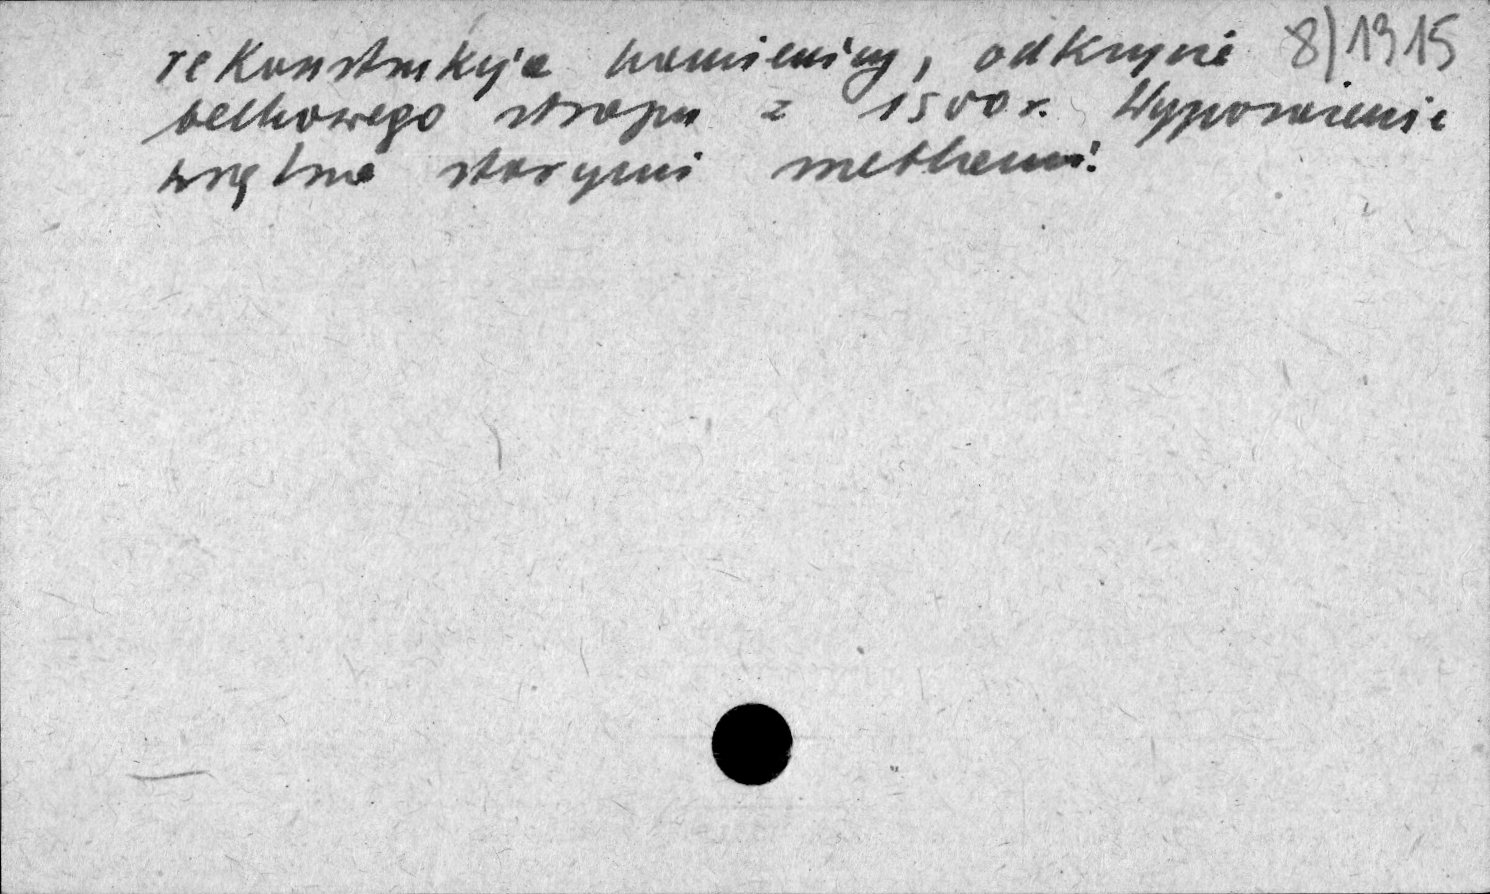 rekonstrukcja kamienicy, odkrycie 8) 1915
belkowego stropu z 1500 r. Wyposażenie
wnętrza starymi meblami.